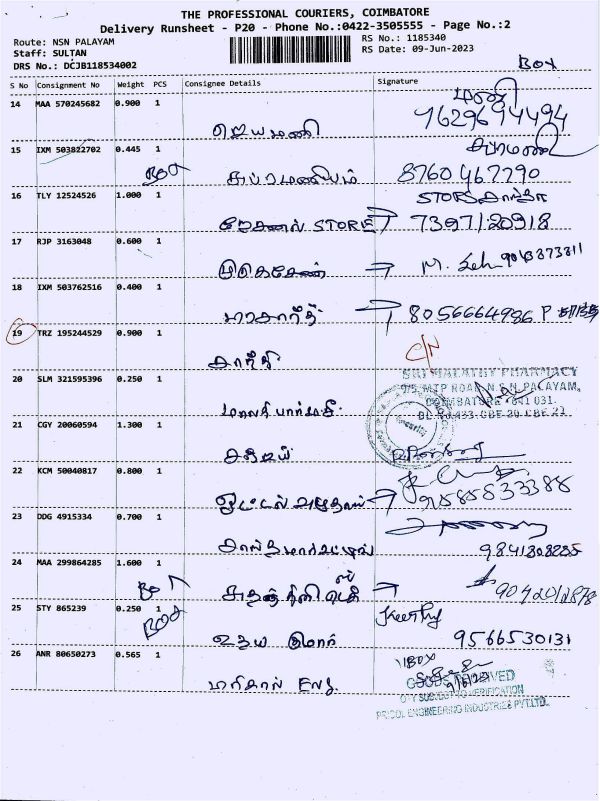 THE PROFESSIONAL COURIERS, COIMBATORE
Delivery Runsheet - P20 - Phone No.:0422-3505555 - Page No.:2
Route: NSN PALAYAM
RS No.: 1185340
Staff: SULTAN
RS Date: 09-Jun-2023
DRS No.: DCJB118534002
BOX
S No Consignment No Weight PCS Consignee Details Signature
14 MAA 570245682 0.900 1
மணி
ஜெயமணி
7629694494
15 IXM 503822702 0.445 1
சுப்ரமணி
BOX
சுப்ரமணியம்
8760467790
16 TLY 12524526 1.000 1
STORE
STORE 7397120918
17 RJP 3163048 0.600 1
M. 9043873811
18 IXM 503762516 0.400 1
8056664986 P
19 TRZ 195244529 0.900 1
C/N
கார்த்தி
20 SLM 321595396 0.250 1
SRI MALATHY PHARMACY
9/5, MTP ROAD, N.S.N. PALAYAM,
COIMBATORE - 641 031.
21 CGY 20060594 1.300 1
22 KCM 50040817 0.800 1
ஓட்டல்
9585533388
23 DDG 4915334 0.700 1
9841808255
24 MAA 299864285 1.600 1
25 STY 865239 0.250 1
BOX
Keerthy
உதய
9566530131
26 ANR 80650273 0.565 1
1 BOX
ENG.
GOODS RECEIVED
QTY SUBJECT TO VERIFICATION
PRICOL ENGINEERING INDUSTRIES PVT.LTD.